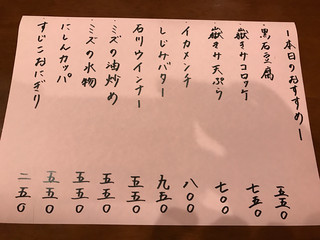 ー本日のおすすめー
・黒石豆腐 五五〇
・嶽きみコロッケ 七五〇
嶽きみ天ぷら 七〇〇
・イカメンチ 八〇〇
しじみバター 九五〇
石川ウインナー 五五〇
・ミズの油炒め 五五〇
・ミズの水物 五五〇
・にしんカッパ 五五〇
すじこおにぎり 二五〇